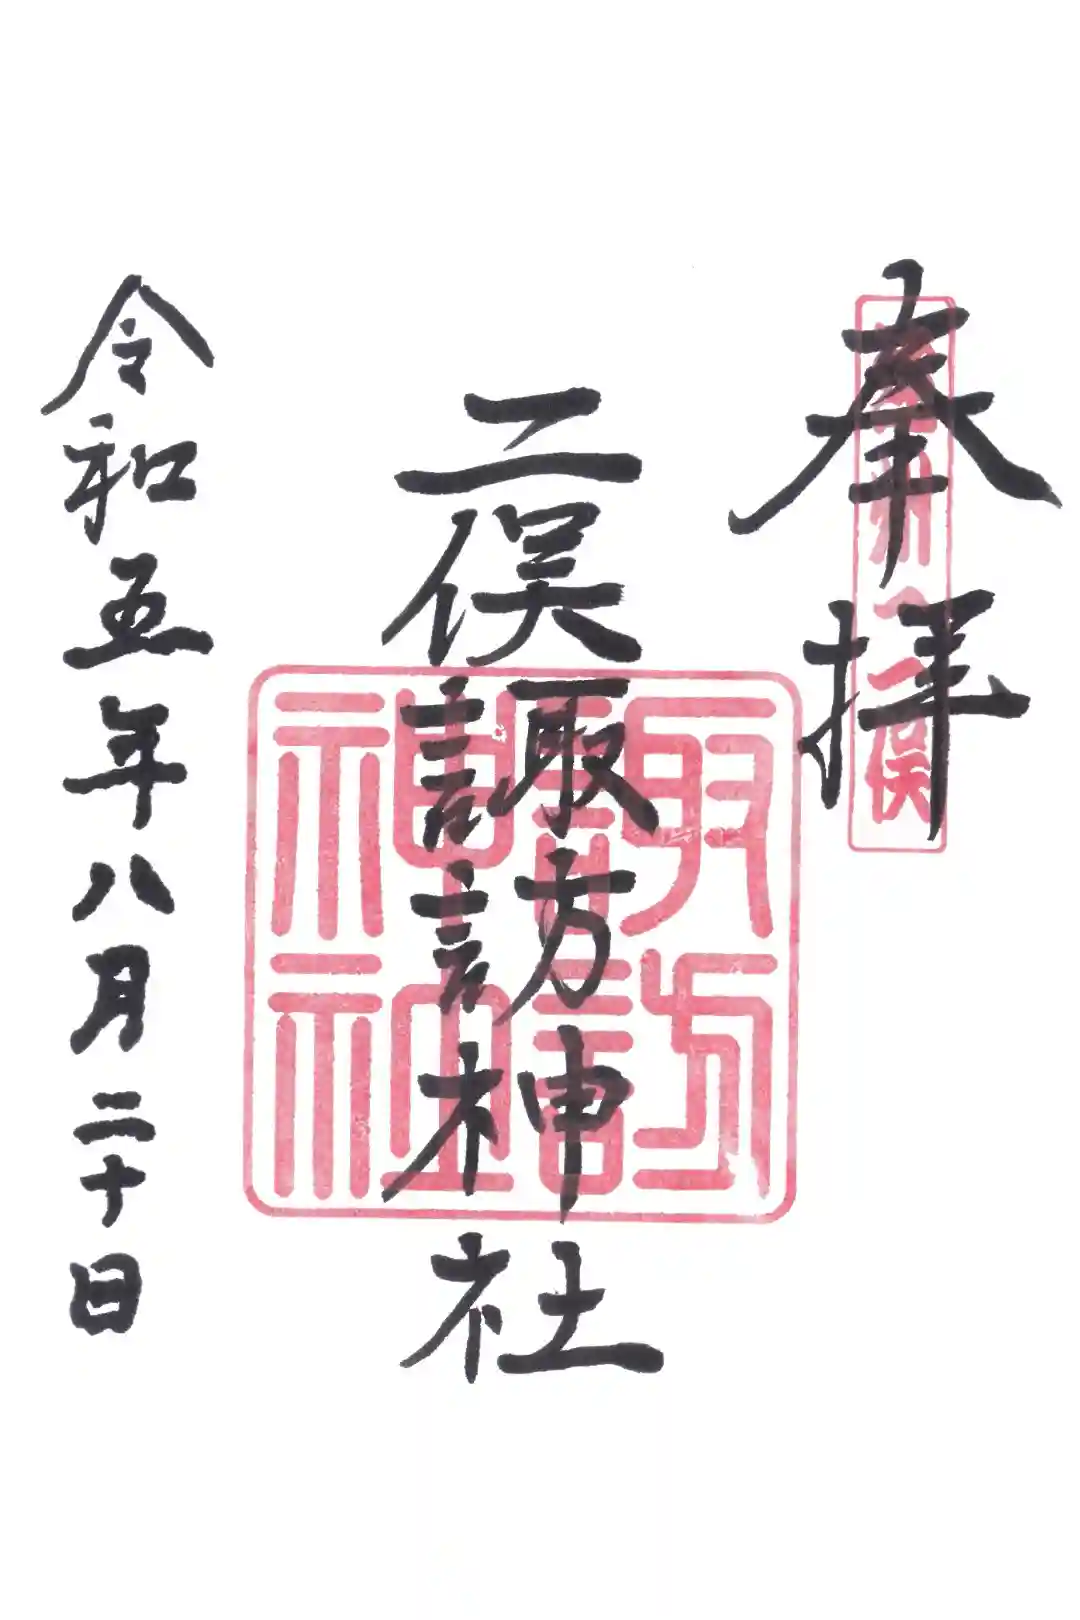 奉拝
二俣諏訪神社
諏訪神社
令和五年八月二十日